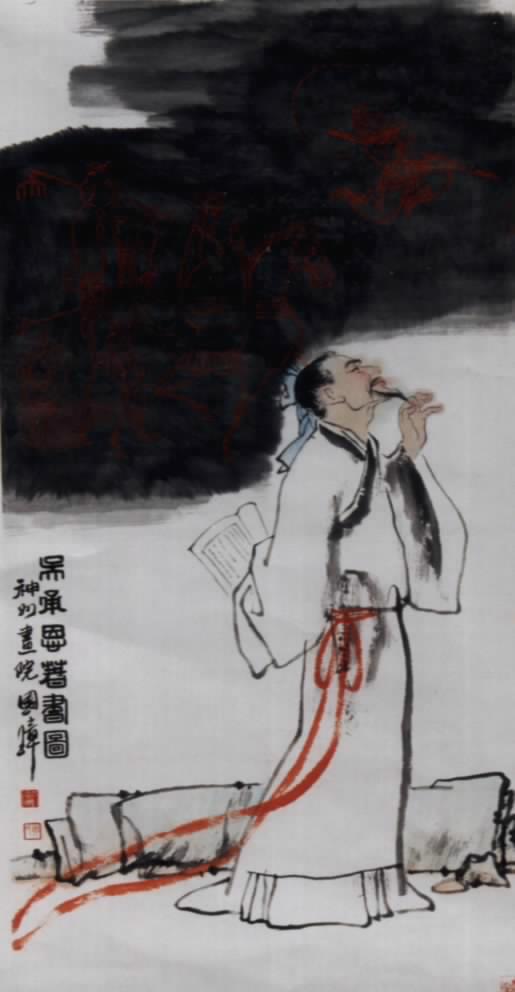 吴承恩著書圖
神州畫院國璋